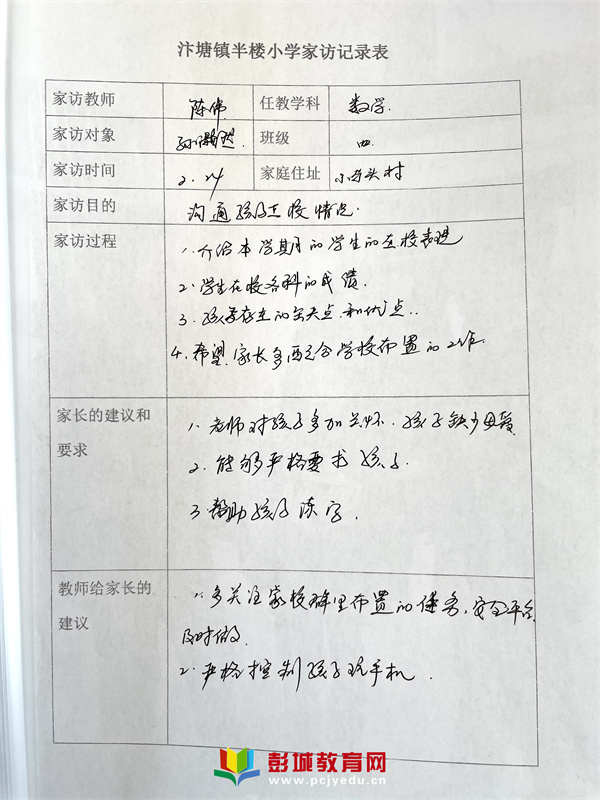 汴塘镇半楼小学家访记录表
家访教师 陈伟 任教学科 数学.
家访对象 班级 四
家访时间 2.24 家庭住址 小马头村
家访目的 沟通孩子在校情况.
家访过程 1.介绍本学期的学生的在校表现
2.学生在校各科的成绩.
3.孩子存在的缺点和优点..
4.希望家长多配合学校布置的工作.
家长的建议和 1.老师对孩子多加关怀.孩子缺少母爱
要求 2.能够严格要求孩子.
3.帮助孩子练字.
教师给家长的 1.多关注家校群里布置的任务,安全平台
建议 及时做.
2.严格控制孩子玩手机.
彭城教育网
www.pcjyedu.cn